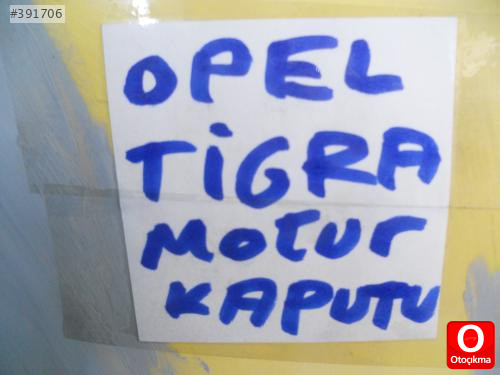 #391706
OPEL
TiGRA
MOTUR
KAPUTU
O
Otoçıkma